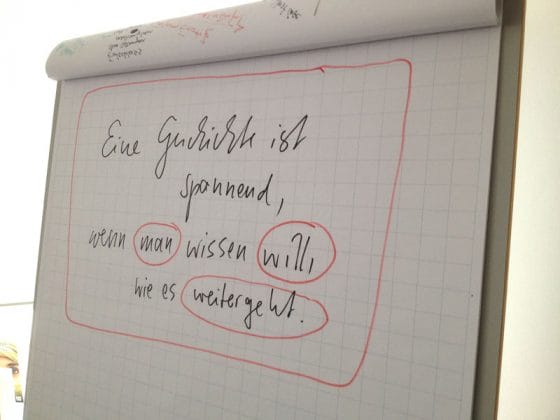 Eine Geschichte ist
spannend,
wenn man wissen will,
wie es weitergeht.